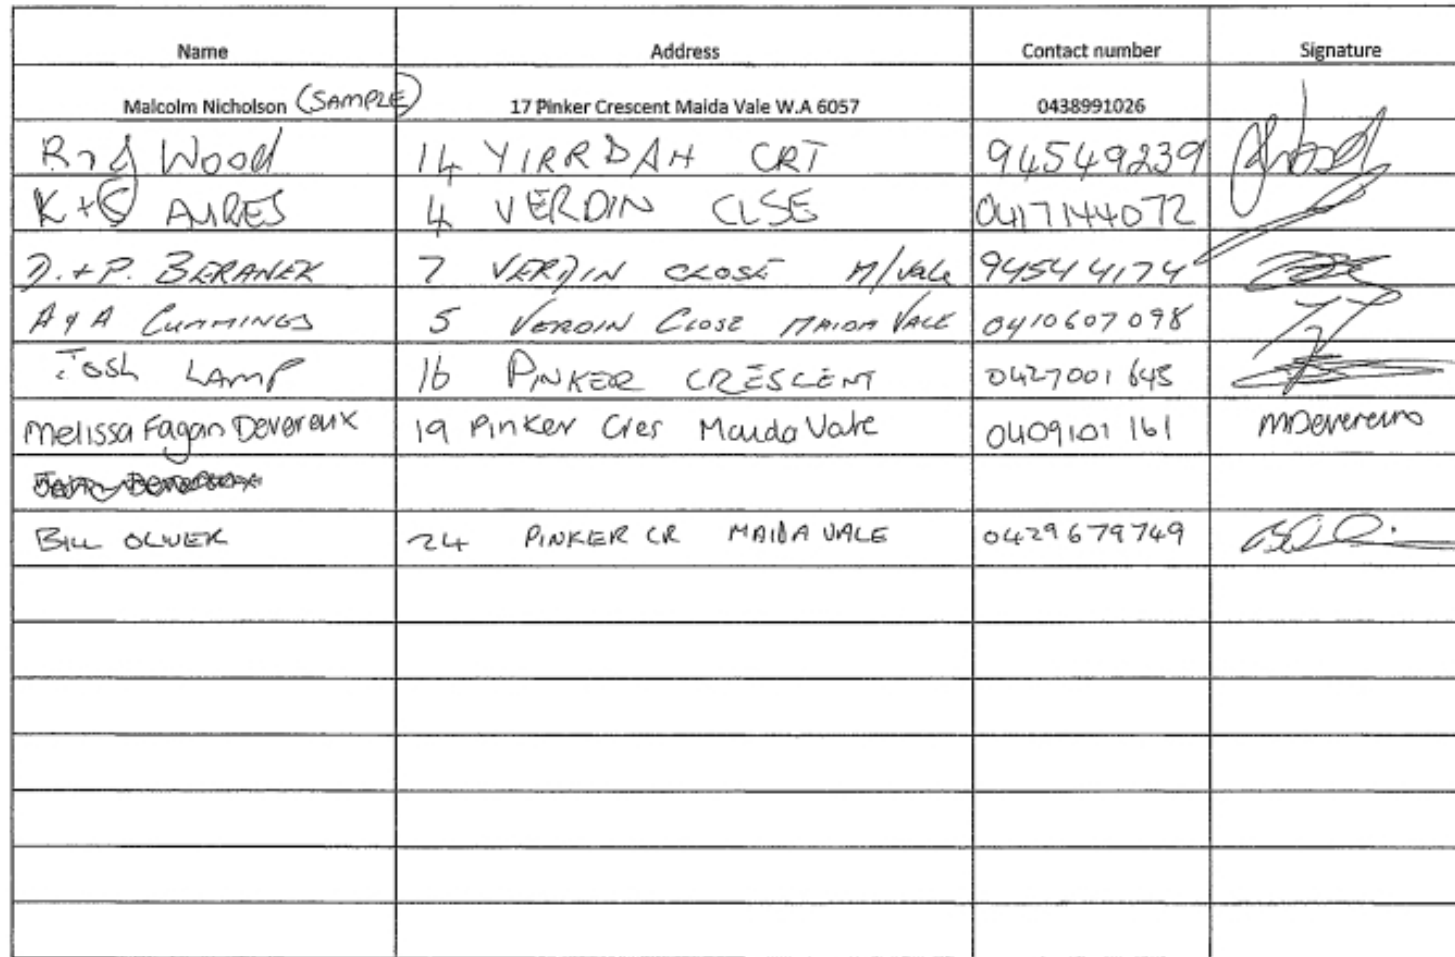 Name Address Contact number Signature
Malcolm Nicholson (SAMPLE) 17 Pinker Crescent Maida Vale W.A 6057 0438991026
Wood 14 YIRRDAH CRT 94549239
K+S AURES 4 VERDIN CLSE 0417144072
D.+P. BERANEK 7 VERDIN CLOSE M/Vale 94544174
A & A CUMMINGS 5 VERDIN CLOSE MAIDA VALE 0410607098
Josh LAMP 16 PINKER CRESCENT 0427001645
Melissa Fagan Devereux 19 Pinker Cres Maida Vale 0409101161 MDevereux
BILL OLIVER 24 PINKER CR MAIDA VALE 0429679749